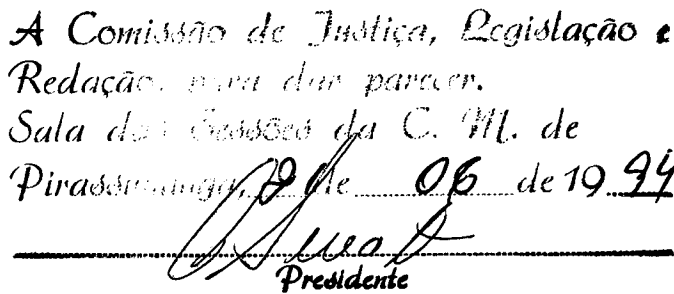 A Comissão de Justiça, Legislação e
Redação, para dar parecer.
Sala das Sessões da C. M. de
Pirassununga, de 06 de 1994
Presidente